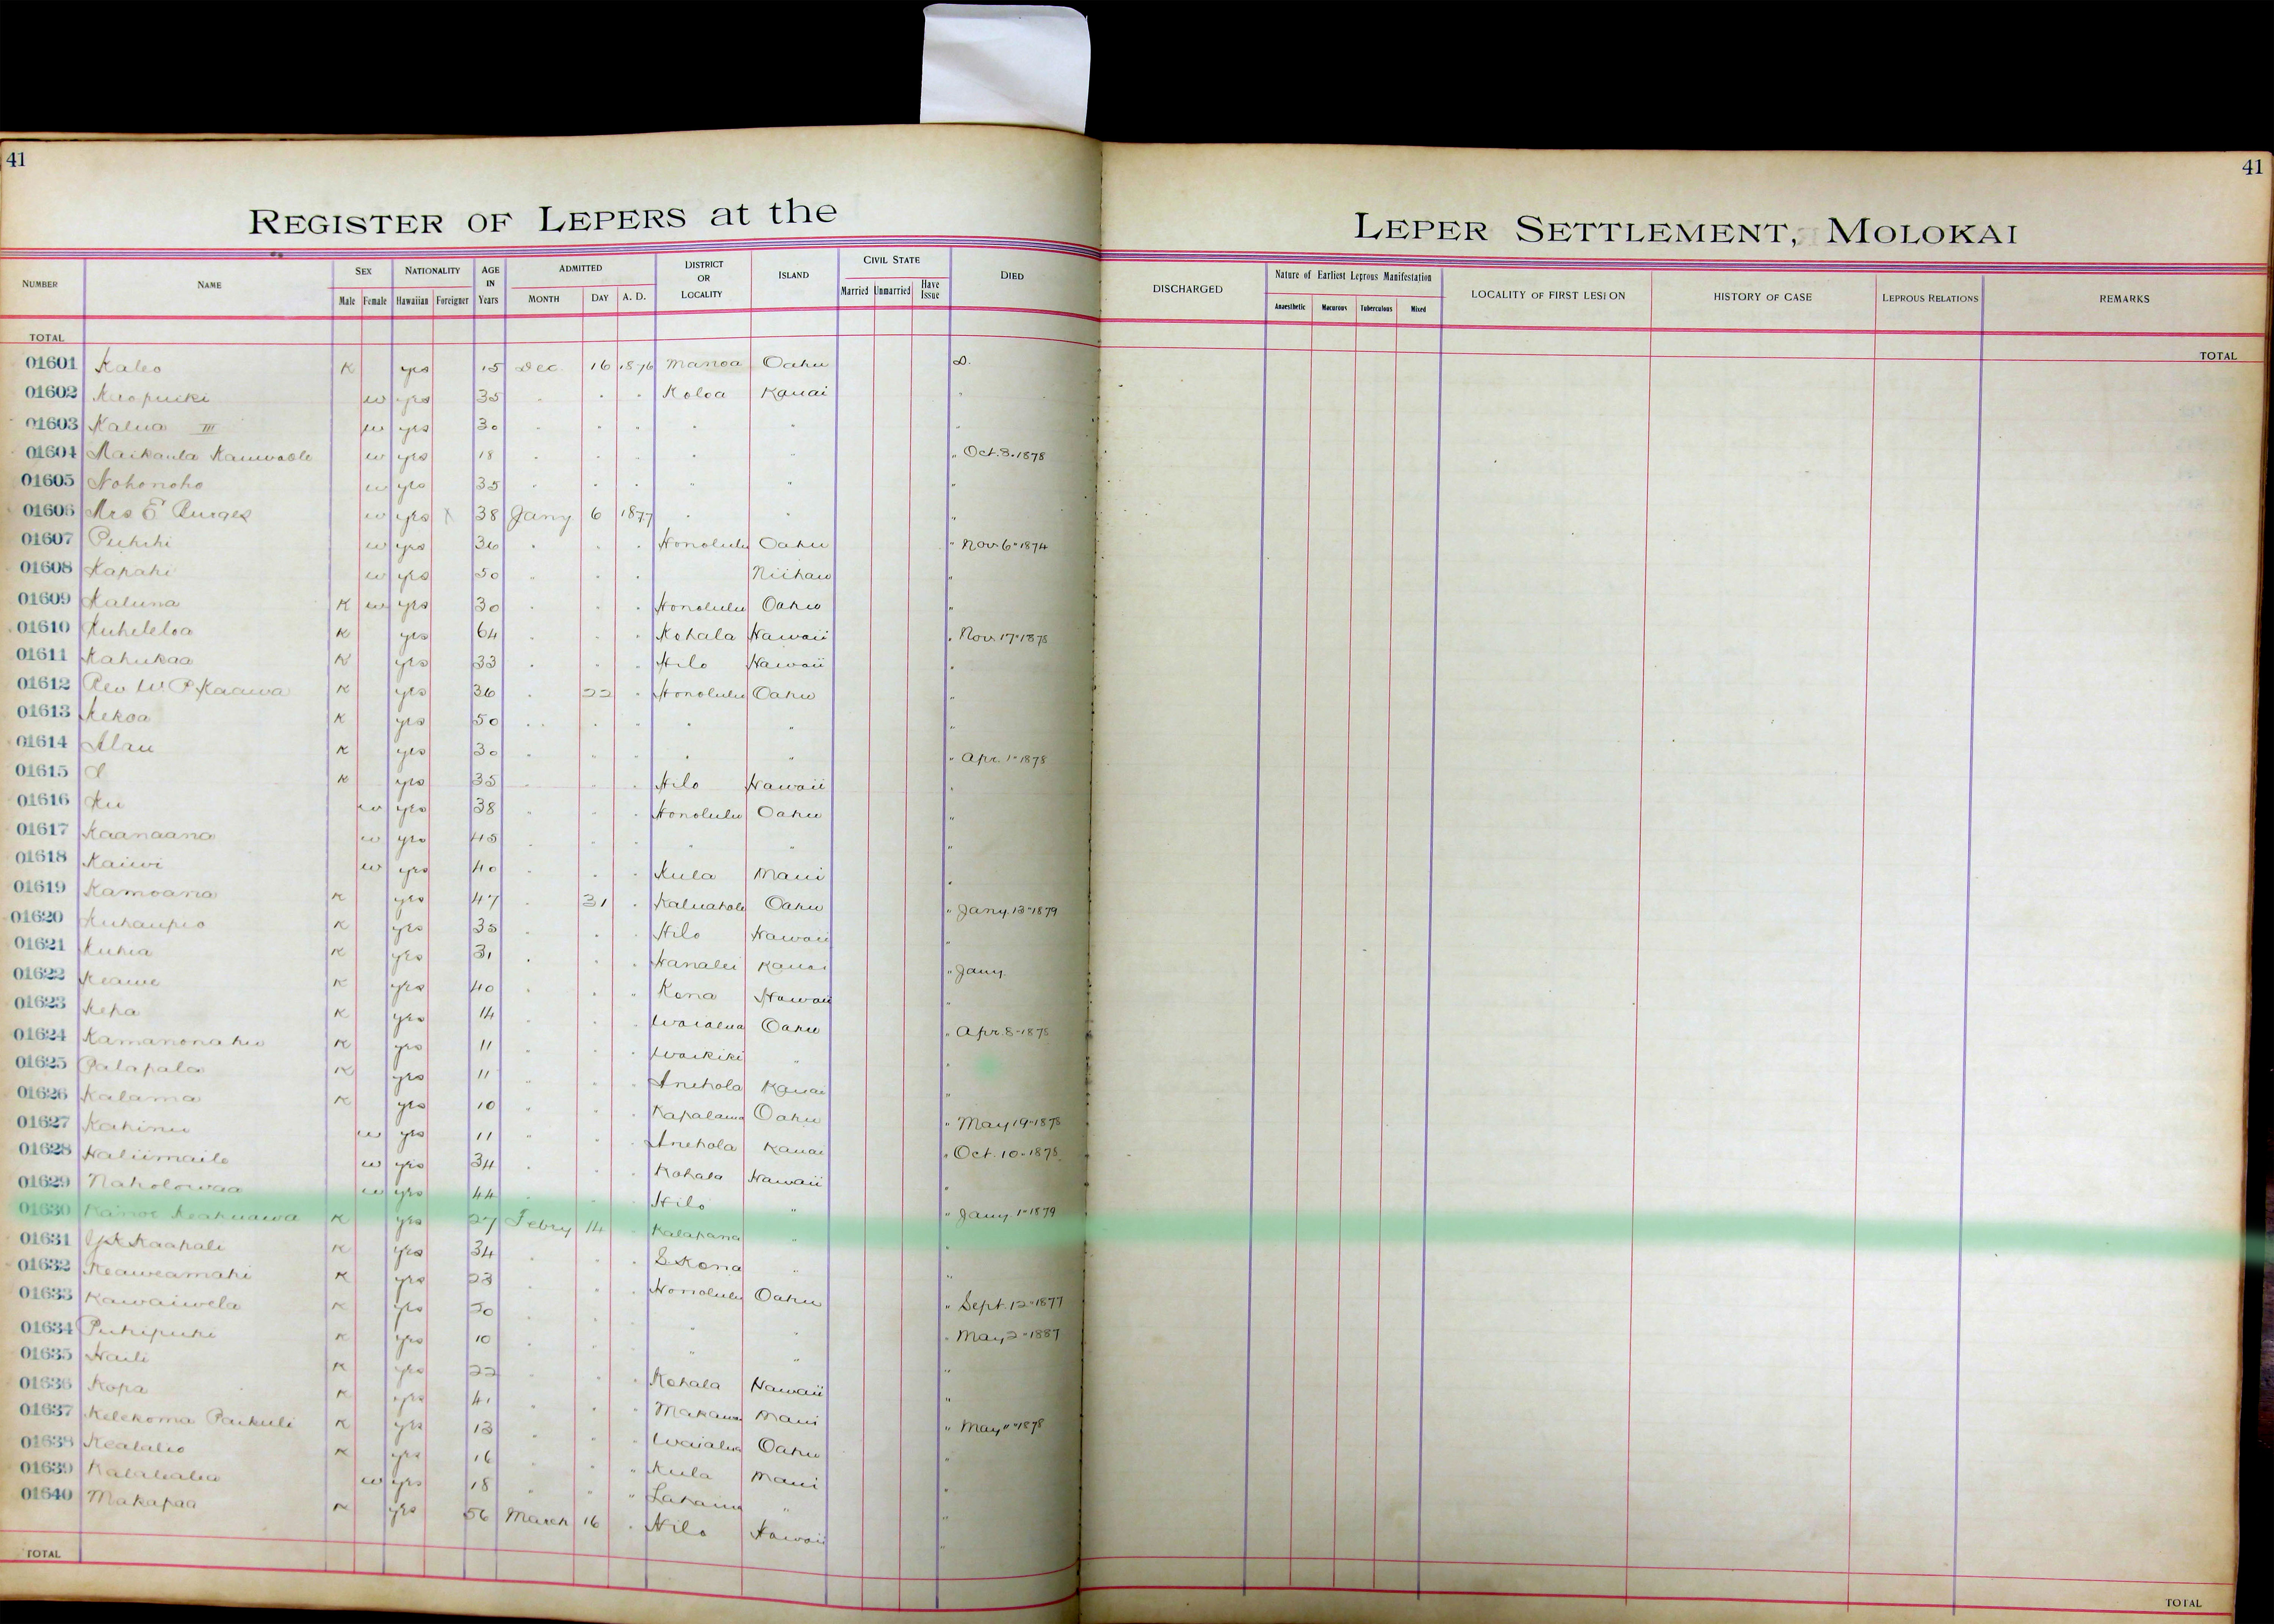 41
41
REGISTER OF LEPERS at the LEPER SETTLEMENT, MOLOKAI
NUMBER NAME SEX NATIONALITY AGE IN Years ADMITTED DISTRICT OR LOCALITY ISLAND CIVIL STATE DIED DISCHARGED Nature of Earliest Leprous Manifestation LOCALITY OF FIRST LESION HISTORY OF CASE LEPROUS RELATIONS REMARKS
Male Female Hawaiian Foreigner MONTH DAY A. D. Married Unmarried Have Issue Anaesthetic Macurous Tuberculous Mixed
TOTAL TOTAL
01601 Kaleo K yes 15 Dec 16 1876 Manoa Oahu D.
01602 w yes 35 " " " Koloa Kauai "
01603 Kalua III w yes 30 " " " " " "
01604 w yes 18 " " " " " " Oct. 3. 1878
01605 Nohonoho w yes 35 " " " " " "
01606 Mrs E Burges w yes X 38 Jany 6 1877 " " "
01607 Puhihi w yes 36 " " " Honolulu Oahu " Nov 6" 1874
01608 Kapahi w yes 50 " " " Niihau "
01609 Kaluna K w yes 30 " " " Honolulu Oahu "
01610 Kuheleloa K yes 64 " " " Kohala Hawaii " Nov 17" 1878
01611 Kahukaa K yes 33 " " " Hilo Hawaii "
01612 Rev W. P. Kaawa K yes 36 " 22 " Honolulu Oahu "
01613 Kekoa K yes 50 " " " " " "
01614 Alau K yes 30 " " " " " " Apr. 1" 1878
01615 K yes 35 " " " Hilo Hawaii "
01616 Ku w yes 38 " " " Honolulu Oahu "
01617 Kaanaana w yes 45 " " " " " "
01618 Kaiwi w yes 40 " " " Kula Maui "
01619 Kamoana K yes 47 " 31 " Kaluahole Oahu " Jany. 13" 1879
01620 Kuhaupio K yes 35 " " " Hilo Hawaii "
01621 Kuhia K yes 31 " " " Hanalei Kauai " Jany.
01622 Keawe K yes 40 " " " Kona Hawaii "
01623 Kepa K yes 14 " " " Waialua Oahu " Apr. 8" 1878
01624 Kamanonahu K yes 11 " " " Waikiki " "
01625 Palapala K yes 11 " " " Anehola Kauai "
01626 Kalama K yes 10 " " " Kapalama Oahu " May 19" 1878
01627 Kahinu w yes 11 " " " Anehola Kauai " Oct. 10" 1878
01628 Haliimaile w yes 34 " " " Kohala Hawaii "
01629 Naholowaa w yes 44 " " " Hilo " " Jany. 1" 1879
01630 K yes 27 Febry 14 " Kalapana " "
01631 Kaahale K yes 34 " " " S. Kona " "
01632 Keaweamahi K yes 23 " " " Honolulu Oahu " Sept. 12" 1877
01633 Kawaiwela K yes 20 " " " " " " May 2" 1887
01634 Puhipuhi K yes 10 " " " " " "
01635 Haili K yes 22 " " " Kohala Hawaii "
01636 Kopa K yes 41 " " " Makawao Maui " May 11" 1878
01637 Kelekoma Paikuli K yes 13 " " " Waialua Oahu "
01638 Kealalio K yes 16 " " " Kula Maui "
01639 w yes 18 " " " Lahaina " "
01640 Makapaa K yes 56 March 16 " Hilo Hawaii "
TOTAL TOTAL